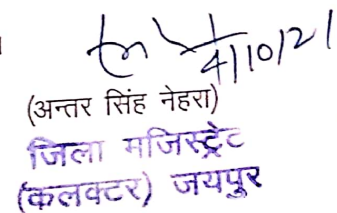 4/10/21
(अन्तर सिंह नेहरा)
जिला मजिस्ट्रेट
(कलक्टर) जयपुर